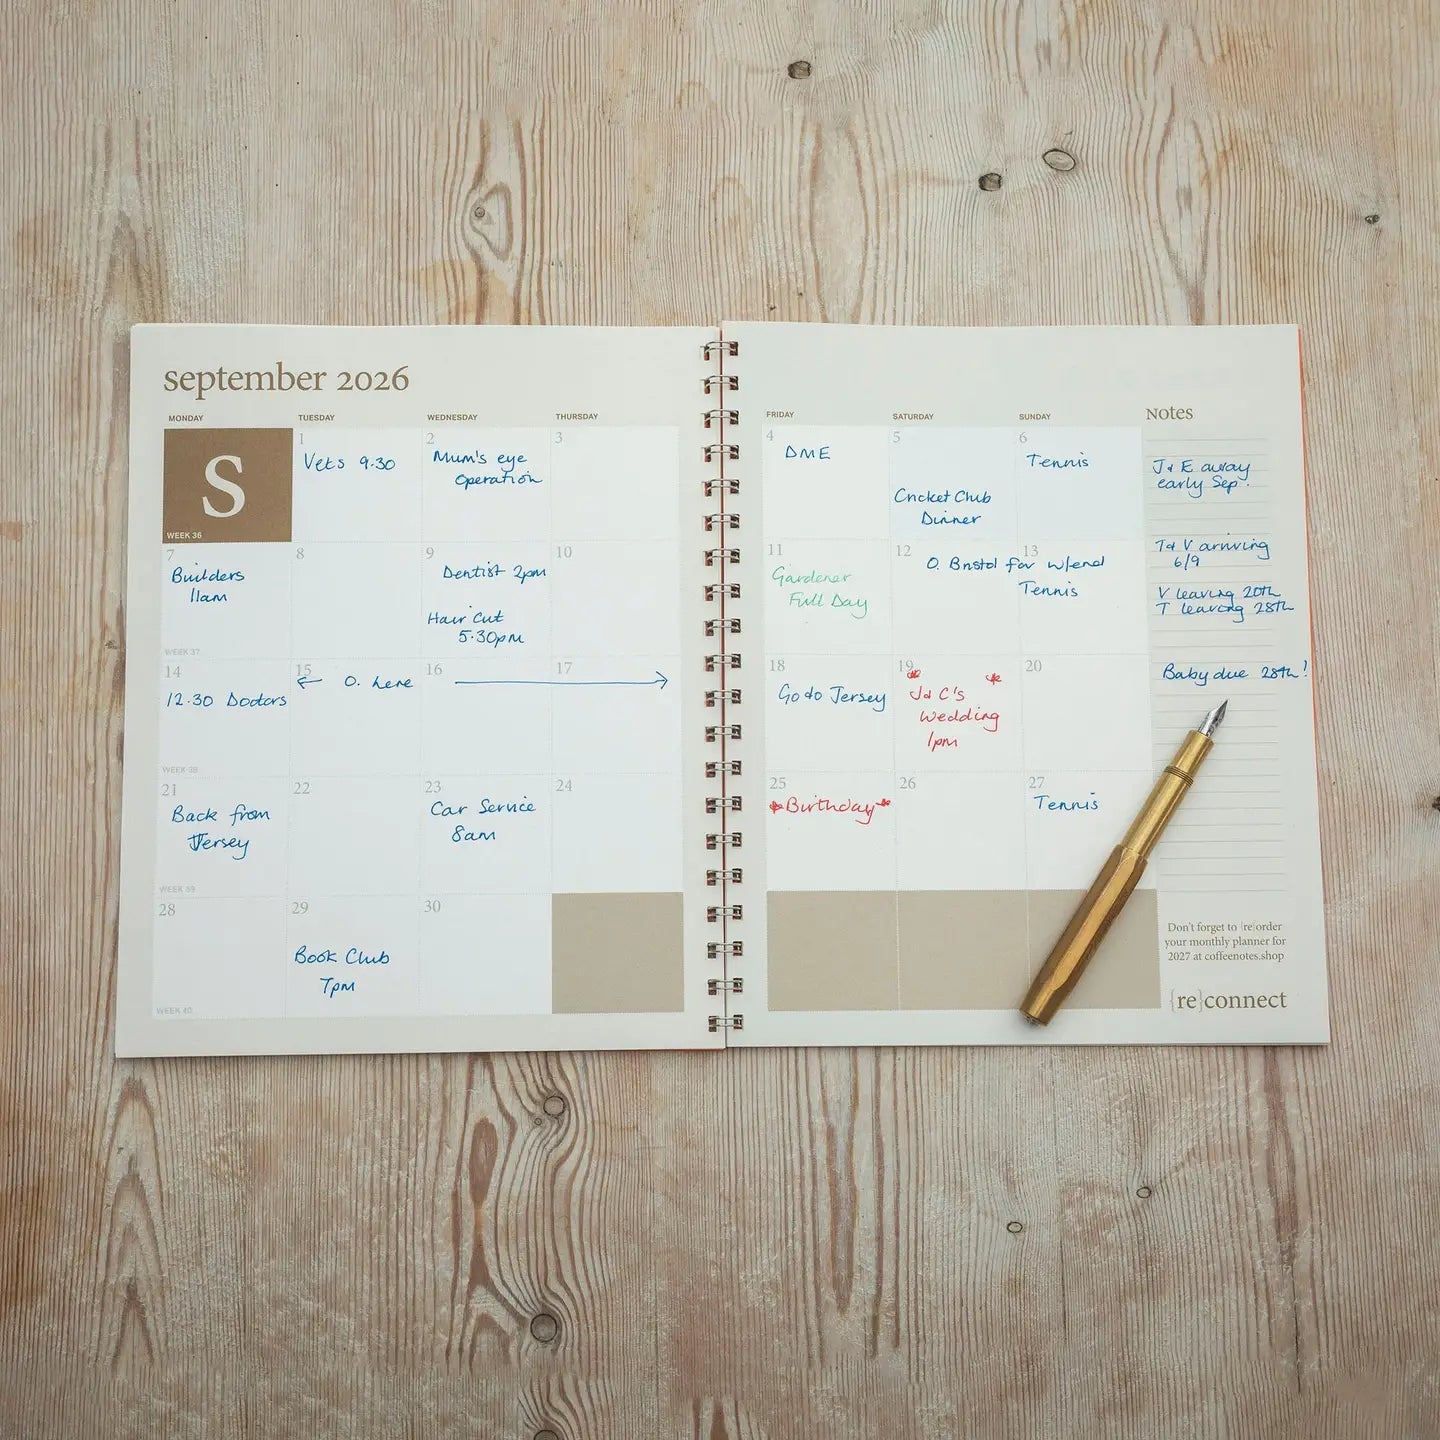 september 2026
MONDAY TUESDAY WEDNESDAY THURSDAY
S
WEEK 36
1
Vets 9.30
2
Mum's eye
operation
3
7
Builders
11am
WEEK 37
8
9
Dentist 2pm
Hair Cut
5.30pm
10
14
12.30 Doctors
WEEK 38
15
O. here
16
17
21
Back from
Jersey
WEEK 39
22
23
Car Service
8am
24
28
WEEK 40
29
Book Club
7pm
30
FRIDAY SATURDAY SUNDAY
4
DME
5
Cricket Club
Dinner
6
Tennis
11
Gardener
Full Day
12
O. Bristol for w/end
13
Tennis
18
Go to Jersey
19
J & C's
Wedding
1pm
20
25
Birthday
26
27
Tennis
Notes
J & E away
early Sep.
T & V arriving
6/9
V leaving 20th
T leaving 28th
Baby due 28th!
Don't forget to {re}order
your monthly planner for
2027 at coffeenotes.shop
{re}connect